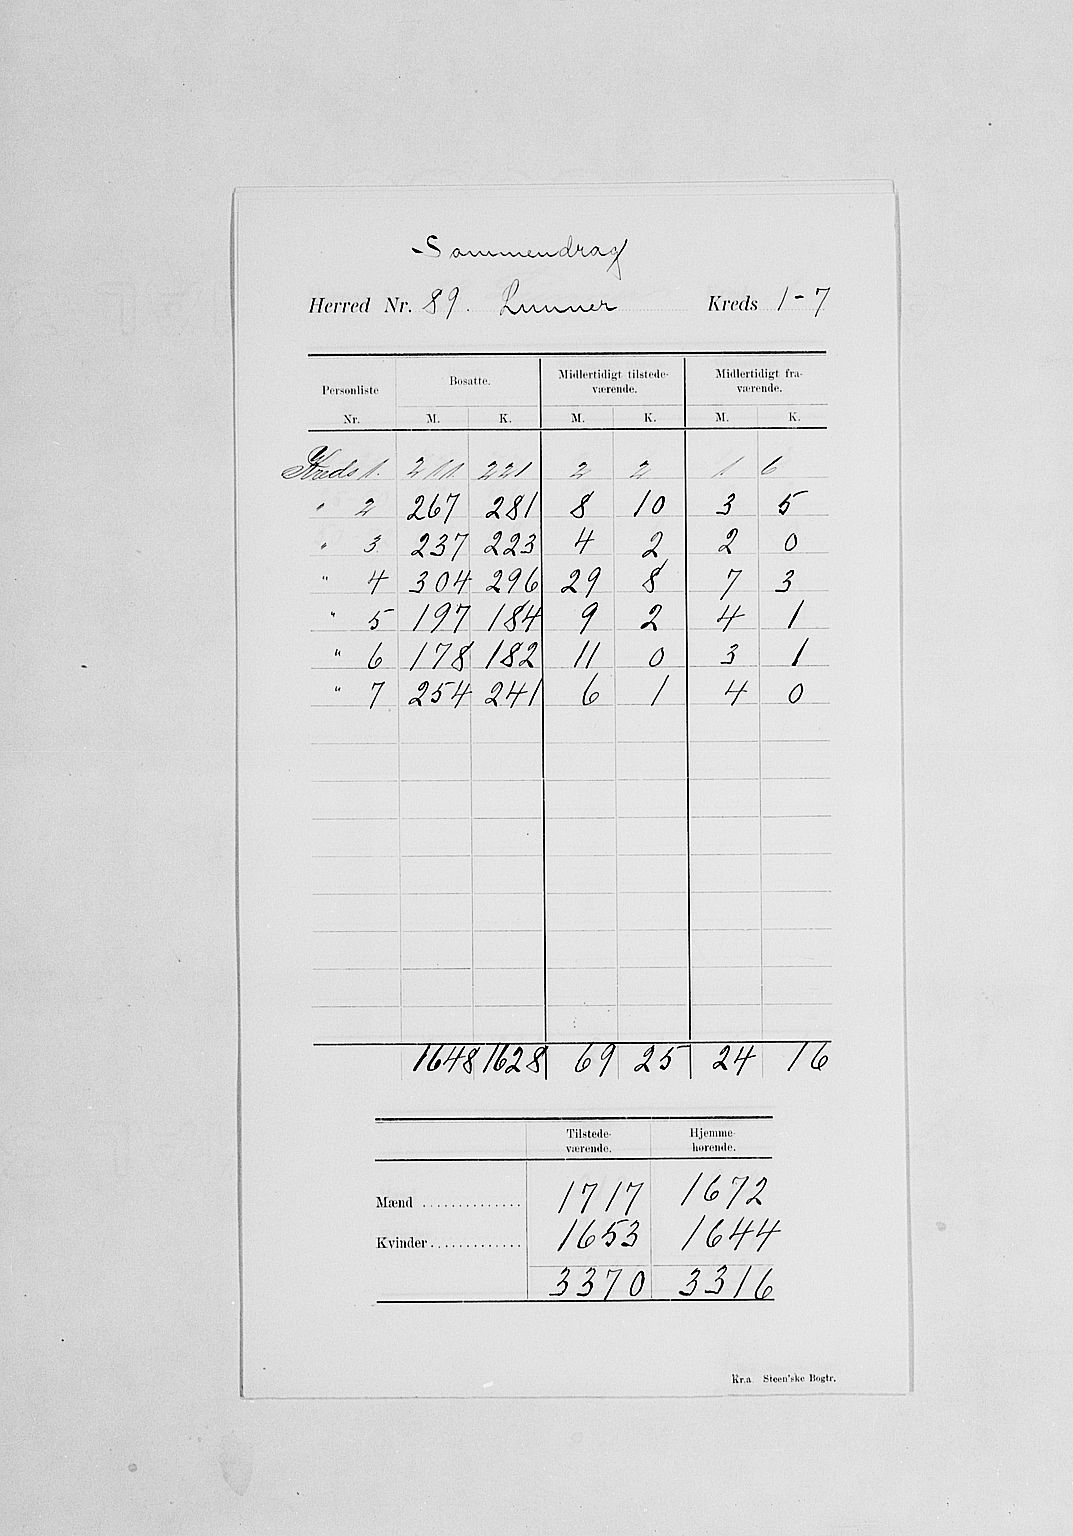 Sammendrag
Herred Nr. 89. Lunner Kreds 1-7
Personliste Nr. Bosatte. Midlertidigt tilstedeværende. Midlertidigt fraværende.
M. K. M. K. M. K.
Kreds 1. 211 221 2 2 1 6
" 2 267 281 8 10 3 5
" 3 237 223 4 2 2 0
" 4 304 296 29 8 7 3
" 5 197 184 9 2 4 1
" 6 178 182 11 0 3 1
" 7 254 241 6 1 4 0
1648 1628 69 25 24 16
Tilstedeværende. Hjemmehørende.
Mænd .............. 1717 1672
Kvinder ............. 1653 1644
3370 3316
Kr.a. Steen'ske Bogtr.